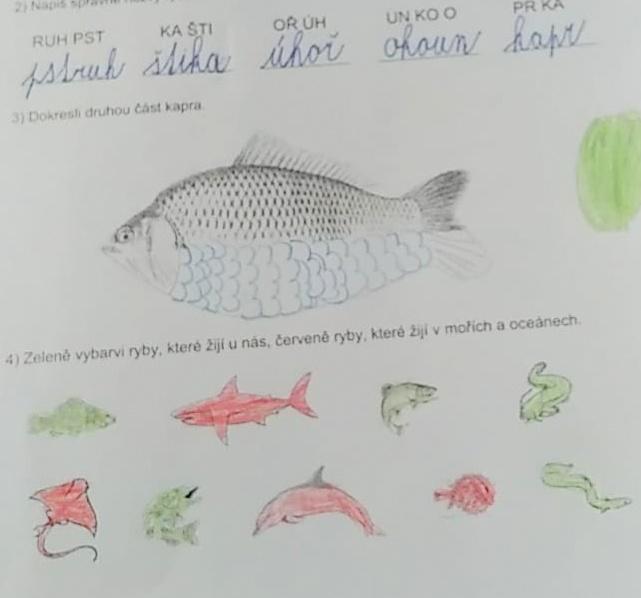 2) Napiš správně názvy
RUH PST KA ŠTI OŘ ÚH UN KO O PR KA
pstruh štika úhoř okoun kapr
3) Dokresli druhou část kapra.
4) Zeleně vybarvi ryby, které žijí u nás, červeně ryby, které žijí v mořích a oceánech.